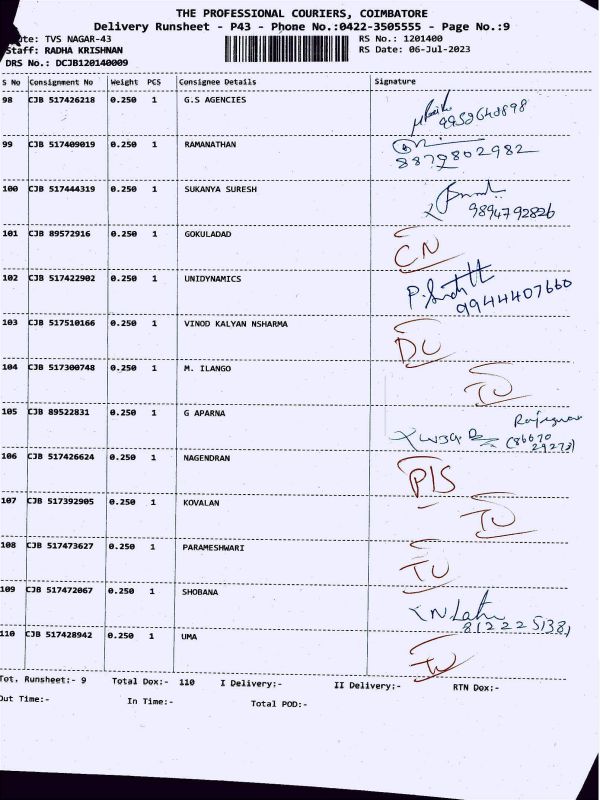 THE PROFESSIONAL COURIERS, COIMBATORE
Delivery Runsheet - P43 - Phone No.:0422-3505555 - Page No.:9
ute: TVS NAGAR-43 RS No.: 1201400
Staff: RADHA KRISHNAN RS Date: 06-Jul-2023
DRS No.: DCJB120140009
S No Consignment No Weight PCS Consignee Details Signature
98 CJB 517426218 0.250 1 G.S AGENCIES
9952640898
99 CJB 517409019 0.250 1 RAMANATHAN
8879802982
100 CJB 517444319 0.250 1 SUKANYA SURESH
9894792826
101 CJB 89572916 0.250 1 GOKULADAD CN
102 CJB 517422902 0.250 1 UNIDYNAMICS
9944407660
103 CJB 517510166 0.250 1 VINOD KALYAN NSHARMA DC
104 CJB 517300748 0.250 1 M. ILANGO TU
105 CJB 89522831 0.250 1 G APARNA
(86670
29273)
106 CJB 517426624 0.250 1 NAGENDRAN PIS
107 CJB 517392905 0.250 1 KOVALAN TU
108 CJB 517473627 0.250 1 PARAMESHWARI TU
109 CJB 517472067 0.250 1 SHOBANA
8122251381
110 CJB 517428942 0.250 1 UMA TU
Tot. Runsheet:- 9 Total Dox:- 110 I Delivery:- II Delivery:- RTN Dox:-
Out Time:- In Time:- Total POD:-